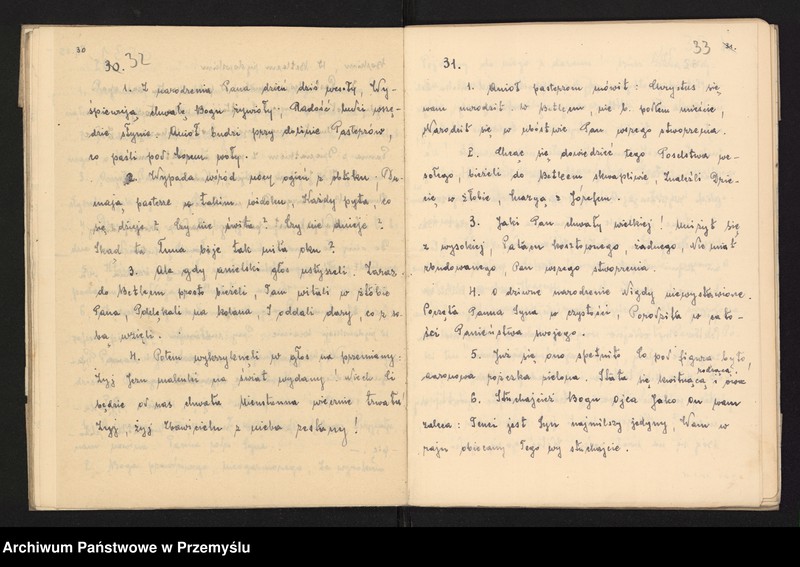 30
30. 32
1. Z narodzenia Pana dzień dziś wesoły, Wy-
śpiewują chwałę Bogu żywioły, Radość ludzi wszę-
dzie słynie. Anioł budzi przy dolinie Pasterzów,
co paśli pod borem woły.
2. Wypada wśród nocy ogień z obłoku, Du-
mają pasterze w takim widoku, Każdy pyta, co
się dzieje? Czy nie świta? Czy nie dnieje?
Skąd ta łuna bije tak miła oku?
3. Ale gdy anielski głos usłyszeli. Zaraz
do Betlejem prosto bieżeli, Tam witali w żłobie
Pana, Poklękali na kolana, I oddali dary, co z so-
bą wzięli.
4. Potem wykrzyknęli w głos na przemiany:
Żyj Jezu malutki na świat wydany! Niech Ci
będzie od nas chwała Nieustanna wiecznie trwała
Żyj, żyj Zbawicielu z nieba zesłany!
33 31.
31.
1. Anioł pasterzom mówił: Chrystus się
wam narodził w Betlejem, nie b. podłem mieście,
Narodził się w ubóstwie Pan wszego stworzenia.
2. Chcąc się dowiedzieć tego Poselstwa we-
sołego, bieżeli do Betlejem skwapliwie, Znaleźli Dzie-
cię w żłobie, Maryą z Józefem.
3. Jaki Pan chwały wielkiej! uniżył się
z wysokiej, Pałacu kosztownego, żadnego, Nie miał
zbudowanego, Pan wszego stworzenia.
4. O dziwne narodzenie Nigdy niewysławione.
Poczęła Panna Syna w czystości, Porodziła w cało-
ści Panieństwa swojego.
5. Już się ono spełniło Co pod figurą było,
Aaronowa różczka zielona. Stała się kwitnąca i owoc
rodząca
6. Słuchajcież Boga Ojca Jako On wam
zaleca: Tenci jest Syn najmilszy jedyny, Wam w
raju obiecany Tego wy słuchajcie.
Archiwum Państwowe w Przemyślu